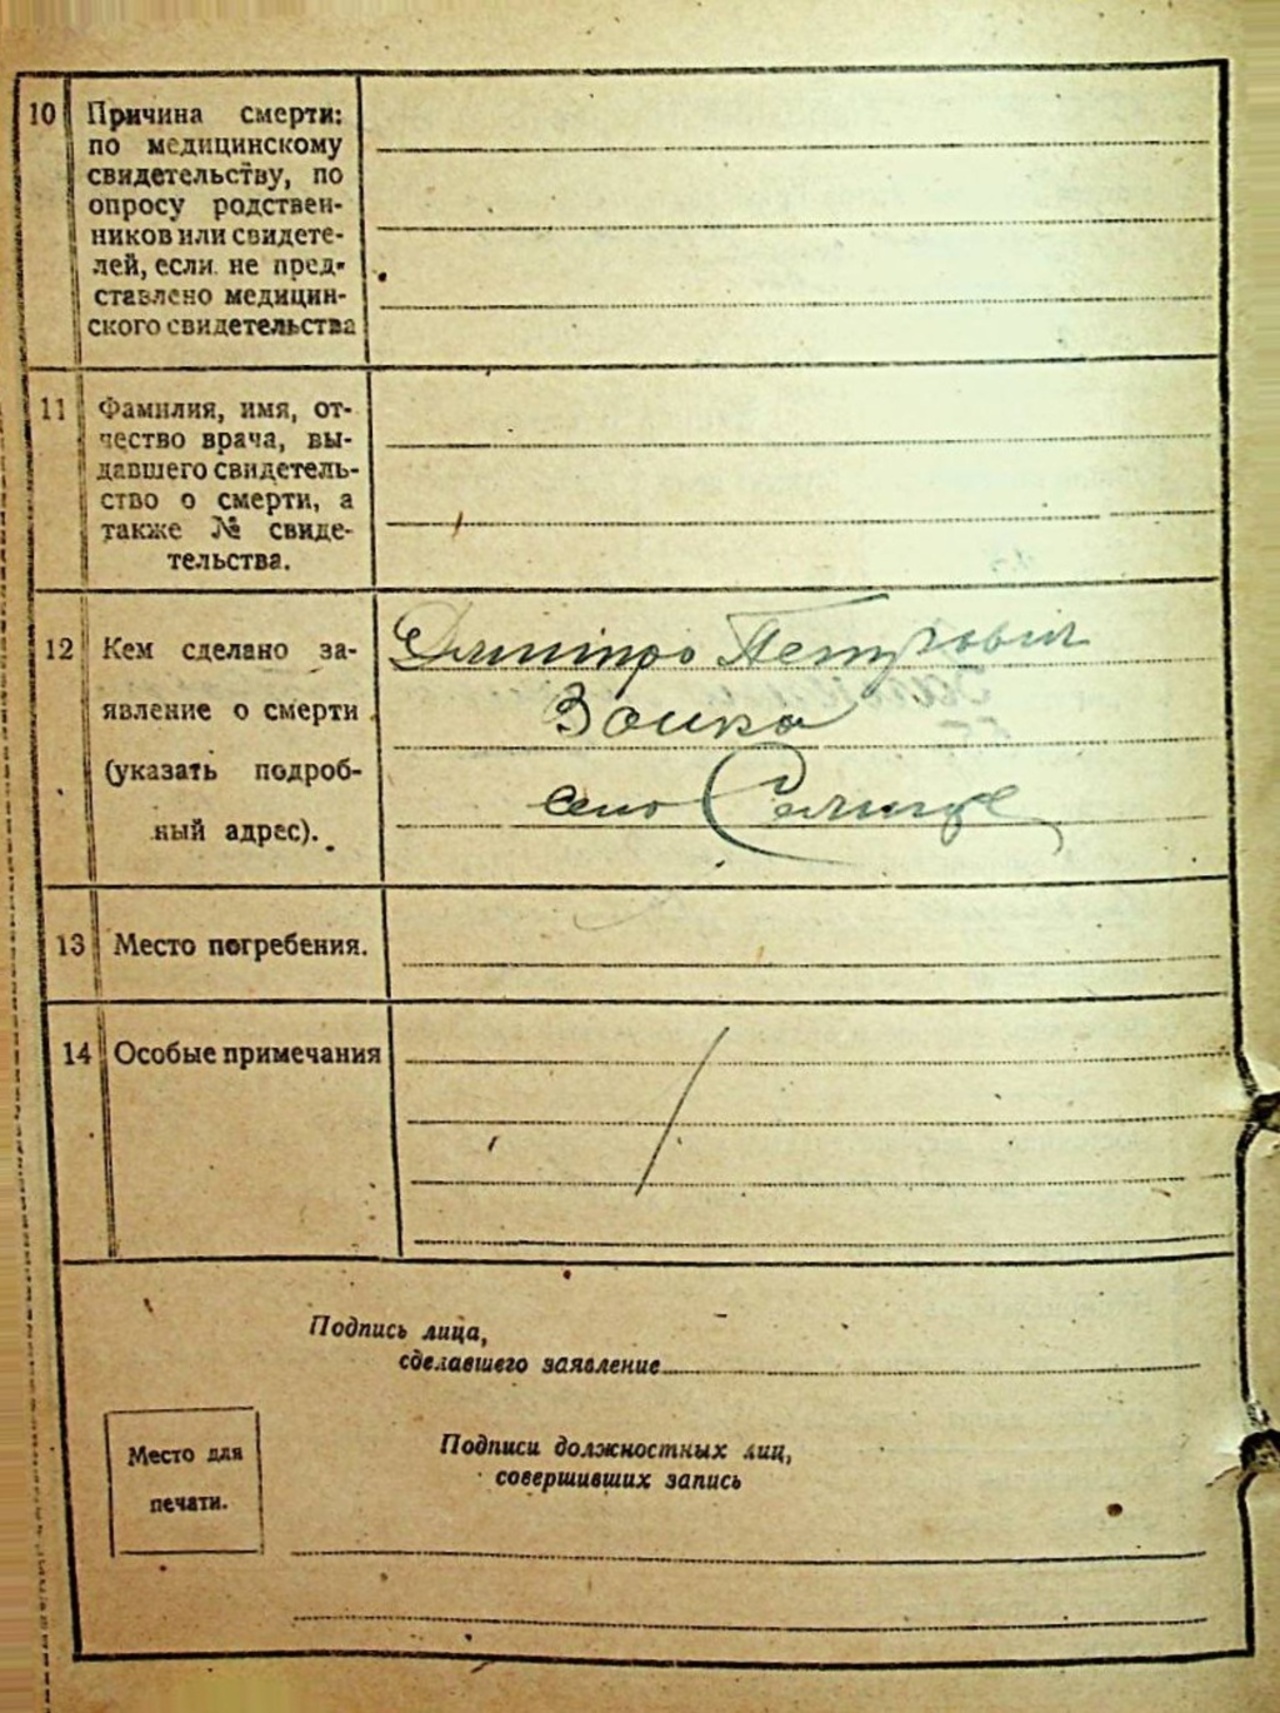 10 Причина смерти:
по медицинскому
свидетельству, по
опросу родствен-
ников или свидете-
лей, если не пред-
ставлено медицин-
ского свидетельства
11 Фамилия, имя, от-
чество врача, вы-
давшего свидетель-
ство о смерти, а
также № свиде-
тельства.
12 Кем сделано за-
явление о смерти
(указать подроб-
ный адрес).
Дмитро Петрович
Заика
село Селище
13 Место погребения.
14 Особые примечания
Подпись лица,
сделавшего заявление
Место для
печати.
Подписи должностных лиц,
совершивших запись